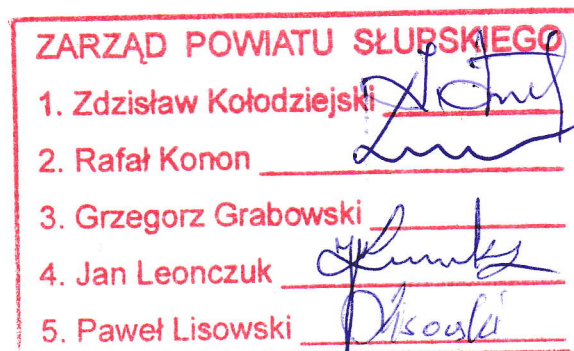 ZARZĄD POWIATU SŁUPSKIEGO
1. Zdzisław Kołodziejski
2. Rafał Konon
3. Grzegorz Grabowski
4. Jan Leonczuk
5. Paweł Lisowski
Lisowski